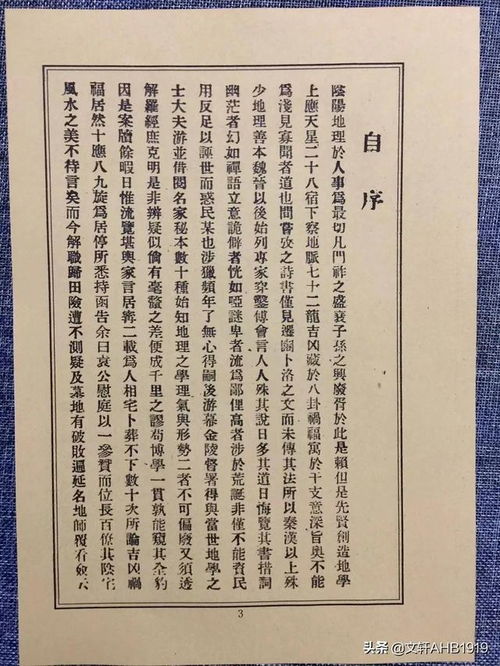 自序
陰陽地理於人事爲最切凡門祚之盛衰子孫之興廢胥於此是賴但是先賢創造地學
上應天星二十八宿下察地脈七十二龍吉凶藏於八卦禍福寓於干支意深旨奧不能
爲淺見寡聞者道也間嘗攷之詩書僅見遷豳卜洛之文而未傳其法所以秦漢以上殊
少地理善本魏晉以後始列專家穿鑿傅會言人人殊其說日多其道日晦覽其書措詞
幽茫者幻如禪語立意詭僻者恍如啞謎卑者流爲鄙俚高者涉於荒誕非僅不能資民
用反足以誣世而惑民某也涉獵頻年了無心得嗣後游幕金陵督署得與當世地學之
士大夫游並借閱名家秘本數十種始知地理之學理氣與形勢二者不可偏廢又須透
解羅經庶克明是非辨疑似倘有毫釐之差便成千里之謬苟博學一貫孰能窺其全豹
因是案牘餘暇日惟流覽堪輿家言居寗二載爲人相宅卜葬不下數十次所論吉凶禍
福居然十應八九旋爲居停所悉持函告余曰袁公慰庭以一參贊而位長百僚其陰宅
風水之美不待言矣而今解職歸田險遭不測疑及墓地有破敗遍延名地師覆看僉云
3
头条 @文轩AHB1919